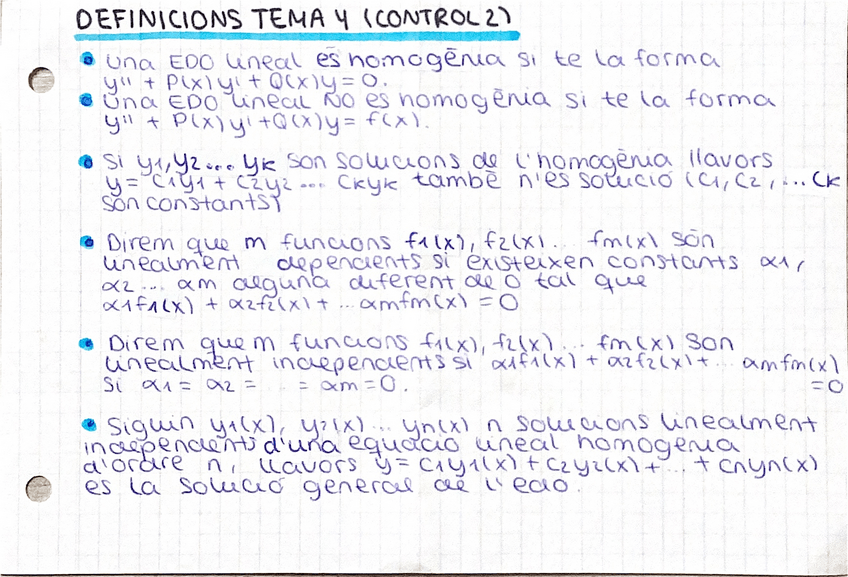 DEFINICIONS TEMA 4 (CONTROL 2)
Una EDO lineal és homogènia si te la forma
y'' + P(x)y' + Q(x)y = 0.
Una EDO lineal NO es homogènia si te la forma
y'' + P(x)y' + Q(x)y = f(x).
Si y1, y2... yk son solucions de l'homogènia llavors
y = c1y1 + c2y2 ... ckyk també n'és solució (c1, c2, ... ck
són constants)
Direm que m funcions f1(x), f2(x)... fm(x) són
linealment dependents si existeixen constants α1,
α2... αm alguna diferent de 0 tal que
α1f1(x) + α2f2(x) + ... αmfm(x) = 0
Direm que m funcions f1(x), f2(x)... fm(x) són
linealment independents si α1f1(x) + α2f2(x) + ... αmfm(x)
si α1 = α2 = ... = αm = 0. = 0
Siguin y1(x), y2(x)... yn(x) n solucions linealment
independents d'una equació lineal homogenia
d'ordre n, llavors y = c1y1(x) + c2y2(x) + ... + cnyn(x)
es la solució general de l'edo.